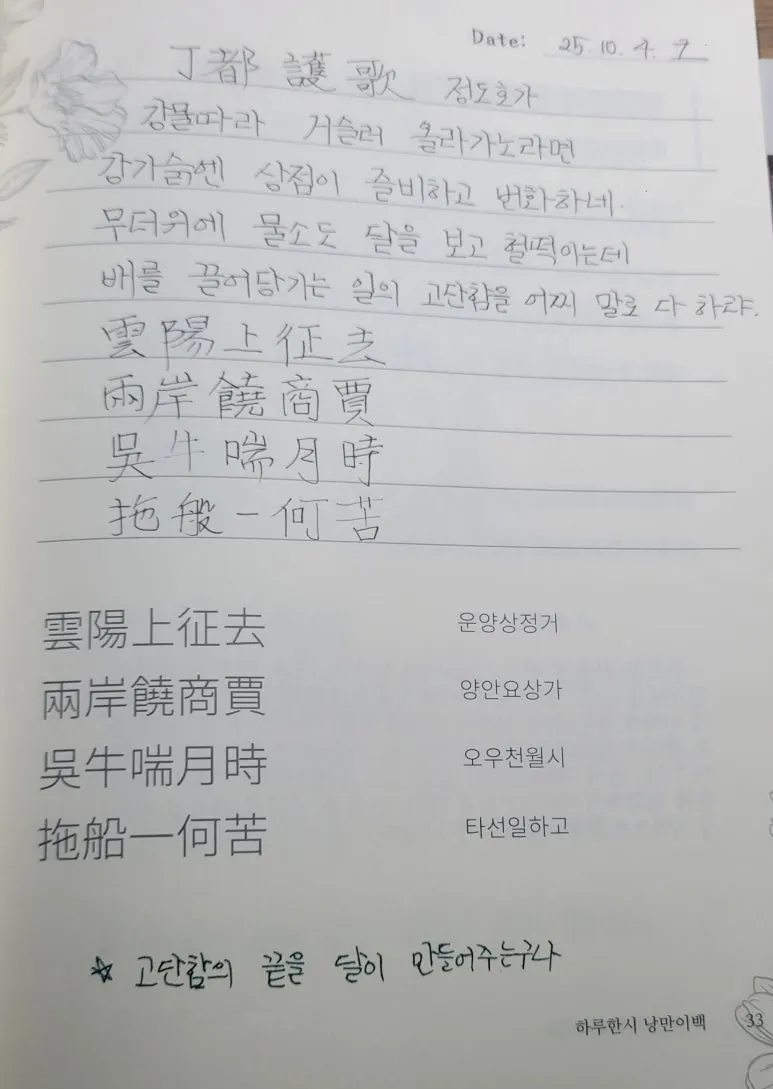 Date: 25. 10. 4. 7.
丁都護歌 정도호가
강물따라 거슬러 올라가노라면
강가슭엔 상점이 즐비하고 번화하네.
무더위에 물소도 달을 보고 헐떡이는데
배를 끌어당기는 일의 고단함을 어찌 말로 다 하랴.
雲陽上征去
兩岸饒商賈
吳牛喘月時
拖船一何苦
雲陽上征去 운양상정거
兩岸饒商賈 양안요상가
吳牛喘月時 오우천월시
拖船一何苦 타선일하고
☆ 고단함의 끝을 달이 만들어주는구나
하루한시 낭만이백 33